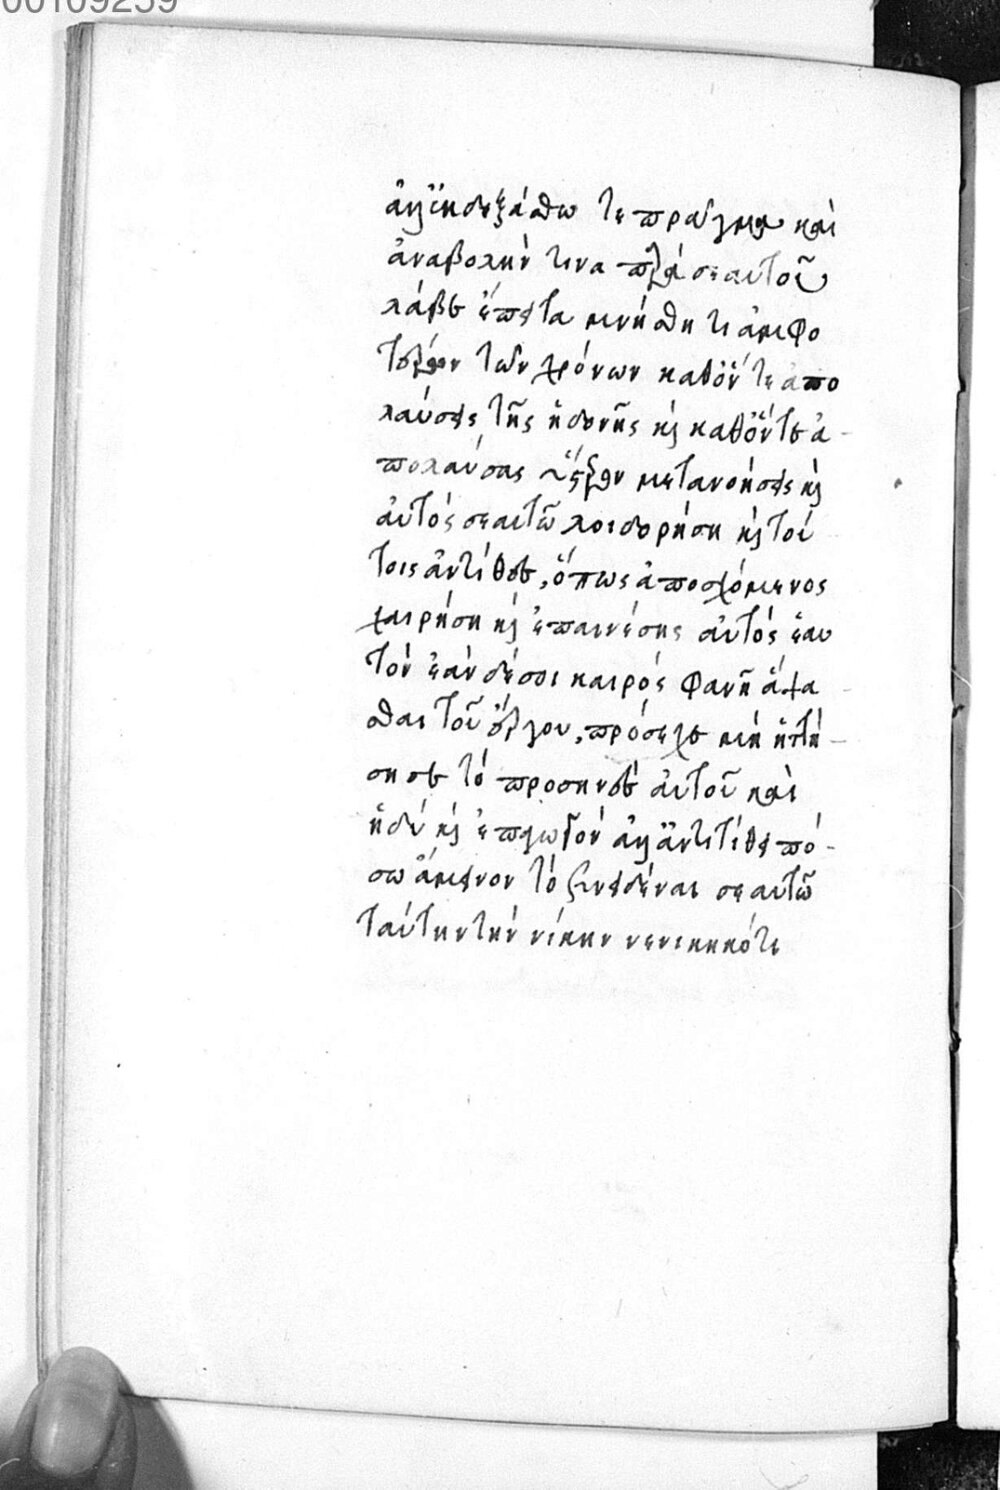 00109259
ἀλλ' ἐκδεξάσθω τε πραῦγμα καὶ
ἀναβολήν τινα παρὰ σεαυτοῦ
λάβε ἔπειτα μνήσθητι ἀμφο
τέρων τῶν χρόνων καθόν τε απο
λαύσεις τῆς ἡδονῆς κ καθόντε ἀ-
πολαύσας ὕστερον μετανοήσεις κ
αὐτός σεαυτῶ λοιδορήση κ τού
τοις ἀντίθες, ὅπως ἀποσχόμενος
χαιρήση κ ἐπαινέσης αὐτός ἑαυ
τόν ἐὰν δέσοι καιρός φανῆ ἅψα
σθαι τοῦ ἔργου, πρόσεχε μή ἡττή-
ση σε τό προσηνές αὐτοῦ καὶ
ἡδύ κ ἐπαγωγόν ἀλλ' ἀντιτίθει πό-
σω ἄμεινον τό ξυνειδέναι σεαυτῶ
ταύτην τήν νίκην νενικηκότι